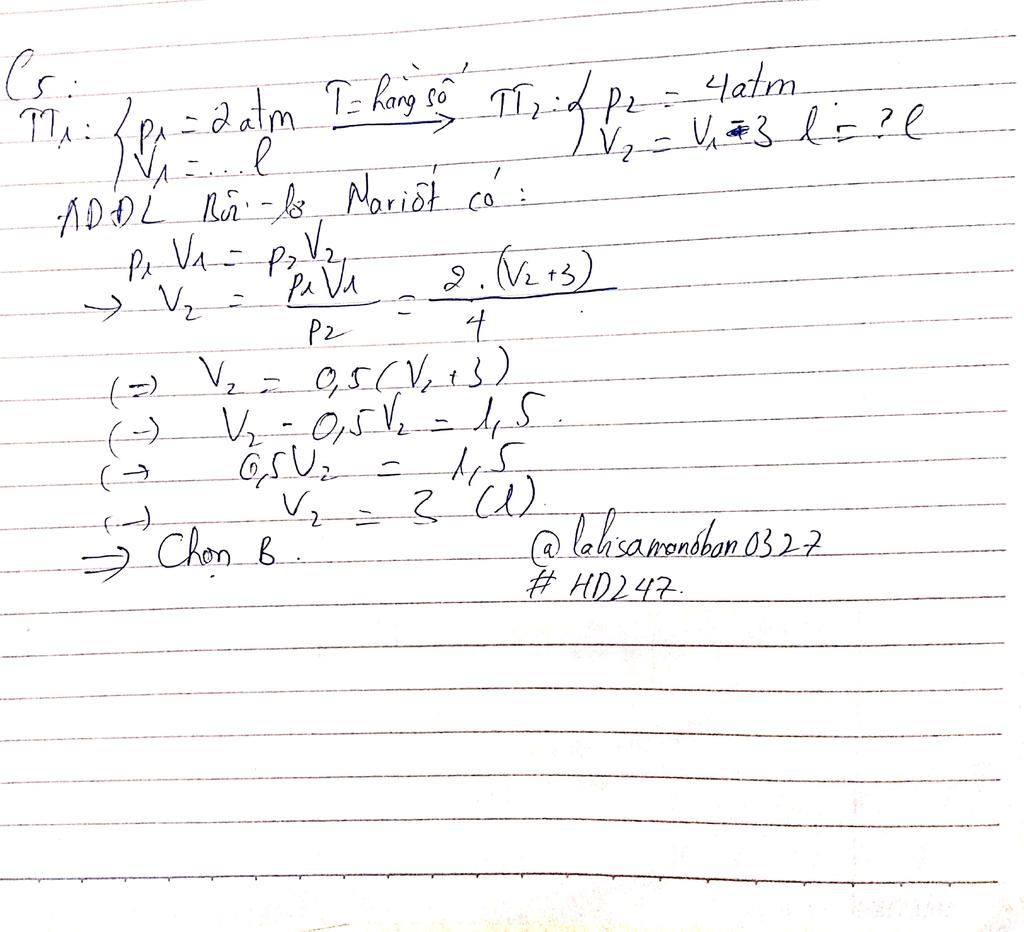 C5:
TT1: { p1 = 2 atm T = hằng số → TT2: { p2 = 4 atm
V1 = ... l V2 = V1 - 3 l = ? l
ADĐL Bôi-lơ Mariốt có:
p1 V1 = p2 V2
→ V2 = p1 V1 / p2 = 2.(V2+3) / 4
(=) V2 = 0,5(V2+3)
(→) V2 - 0,5V2 = 1,5.
(→ 0,5V2 = 1,5
(→) V2 = 3 (l)
⇒ Chọn B.
@lalisamanoban0327
# HD247.